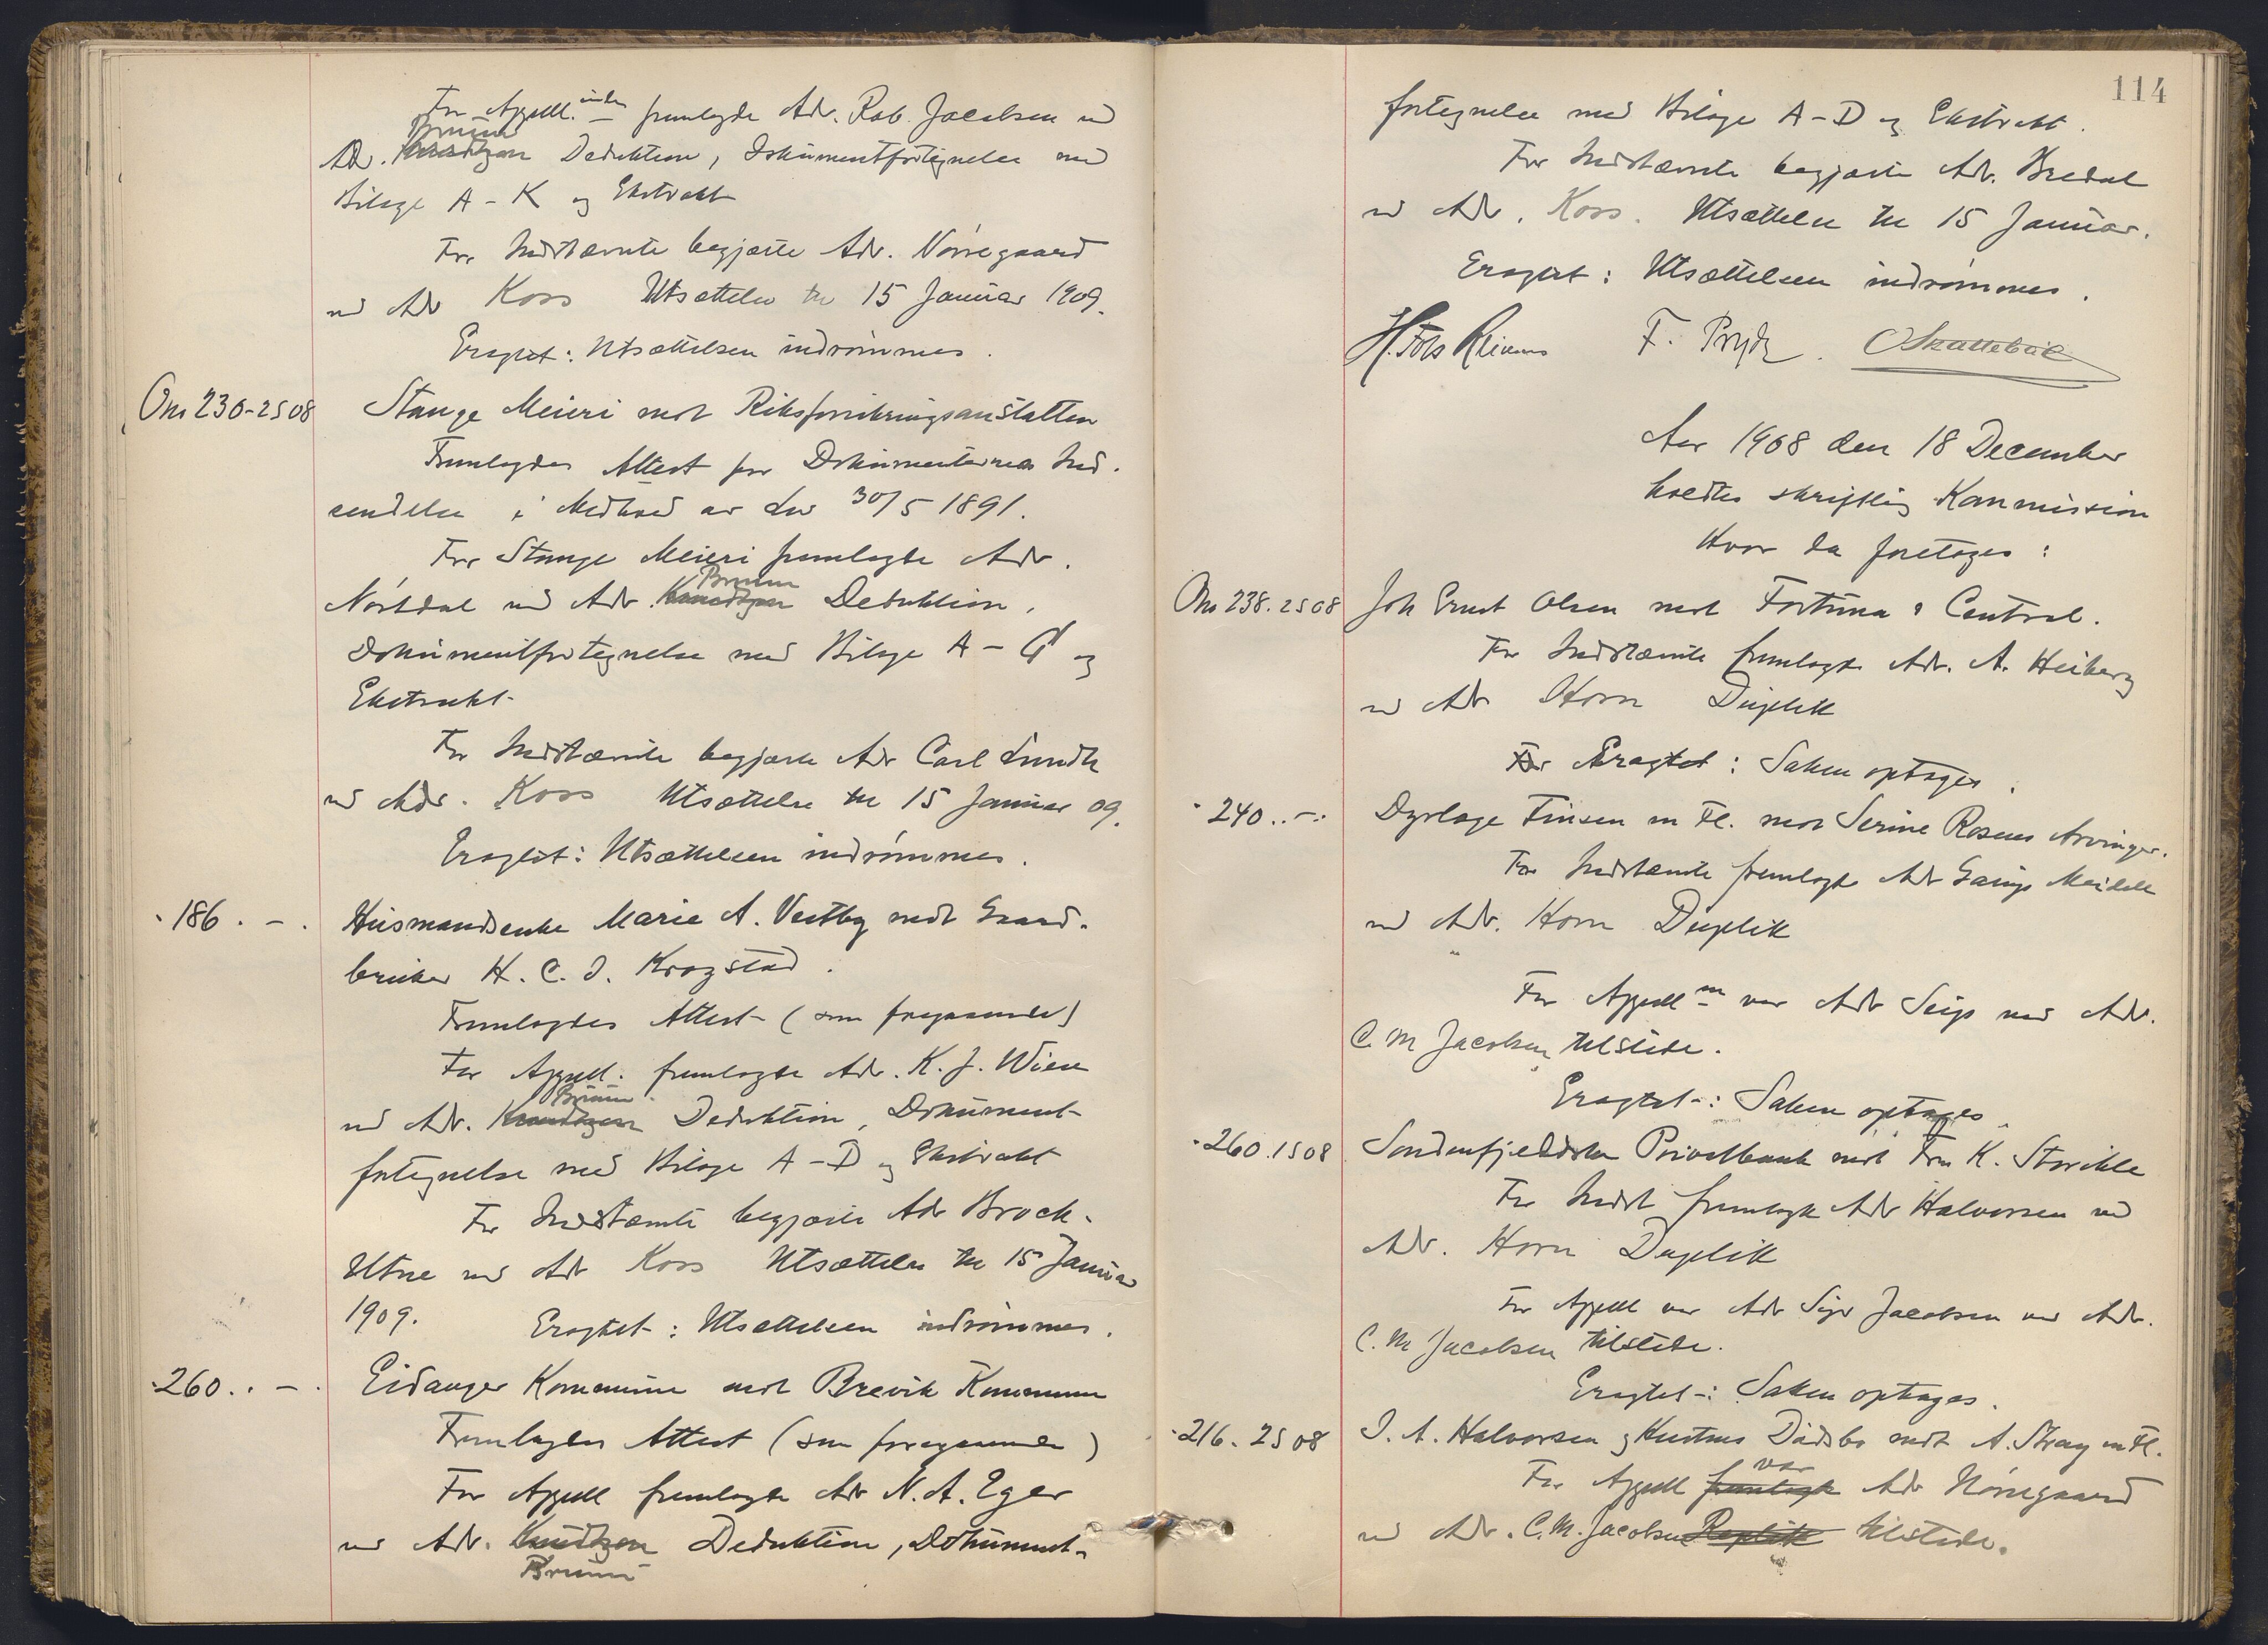 For Appell.inden fremlagde Adv. Rob. Jacobsen ved
Adv. Knudtzon Bruun Deduktion, Dokumentfortegnelse med
Bilage A - K og Ekstrakt
For Indstævnte begjærte Adv. Nørregaard
ved Adv Koss Utsættelse til 15 Januar 1909.
Eragtet: Utsættelsen indrømmes.
Ons 230-2S08 Stange Meieri mot Riksforsikringsanstalten
Fremlagdes Attest for Dokumenternes Ind-
sendelse i Medhold av Lov 30/5 1891.
For Stange Meieri fremlagde Adv.
Nørdal ved Adv. Knudtzon Bruun Deduktion,
Dokumentfortegnelse med Bilage A - G og
Ekstrakt
For Indstævnte begjærte Adv Carl Lundh
ved Adv. Koss Utsættelse til 15 Januar 09.
Eragtet: Utsættelsen indrømmes.
" 186 . - . Husmandsenke Marie A. Vestby mot Gaard-
bruker H. C. J. Krogstad.
Fremlagdes Attest (som foregaaende)
For Appell. fremlagde Adv. K. J. Wiese
ved Adv. Knudtzon Bruun Deduktion, Dokument-
fortegnelse med Bilage A - D og Ekstrakt
For Indstævnte begjærte Adv Brock-
Utne ved Adv Koss Utsættelse til 15 Januar
1909. Eragtet: Utsættelsen indrømmes.
" 260 . . - . Eidanger Kommune mot Brevik Kommune
Fremlagdes Attest (som foregaaende)
For Appell fremlagde Adv N. A. Eger
ved Adv. Knudtzon Deduktion, Dokument-
Bruun
114
fortegnelse med Bilage A - D og Ekstrakt.
For Indstævnte begjærte Adv. Bredal
ved Adv. Koss. Utsættelse til 15 Januar.
Eragtet: Utsættelsen indrømmes.
F. Pryds. O Skattebøl
Aar 1908 den 18 December
holdtes skriftlig Kommission
Hvor da foretoges:
Ons 238. 2S08 Joh Ernst Olsen mot Fortuna & Central.
For Indstævnte fremlagde Adv. A. Heiberg
ved Adv Horn Duplik
For Eragtet: Saken optages.
" 240 . . - . . Dyrlæge Finsen m Fl. mot Serine Rosens Arvinger.
For Indstævnte fremlagde Adv Meidell
ved Adv. Horn Duplik
For Appell var Adv Seip ved Adv.
C. M Jacobsen tilstede.
Eragtet: Saken optages
" 260. 1S08 Søndenfjeldske Privatbank mot Fru K. Storikle
For Indst fremlagde Adv Halvorsen ved
Adv. Horn Duplik
For Appell var Adv Sigv Jacobsen ved Adv.
C. M Jacobsen tilstede.
Eragtet: Saken optages.
" 216. 2S08 J. A. Halvorsen og Hustrus Dødsbo mot A. Stray m Fl.
For Appell fremlagde var Adv Nørregaard
ved Adv. C. M. Jacobsen Replik tilstede.